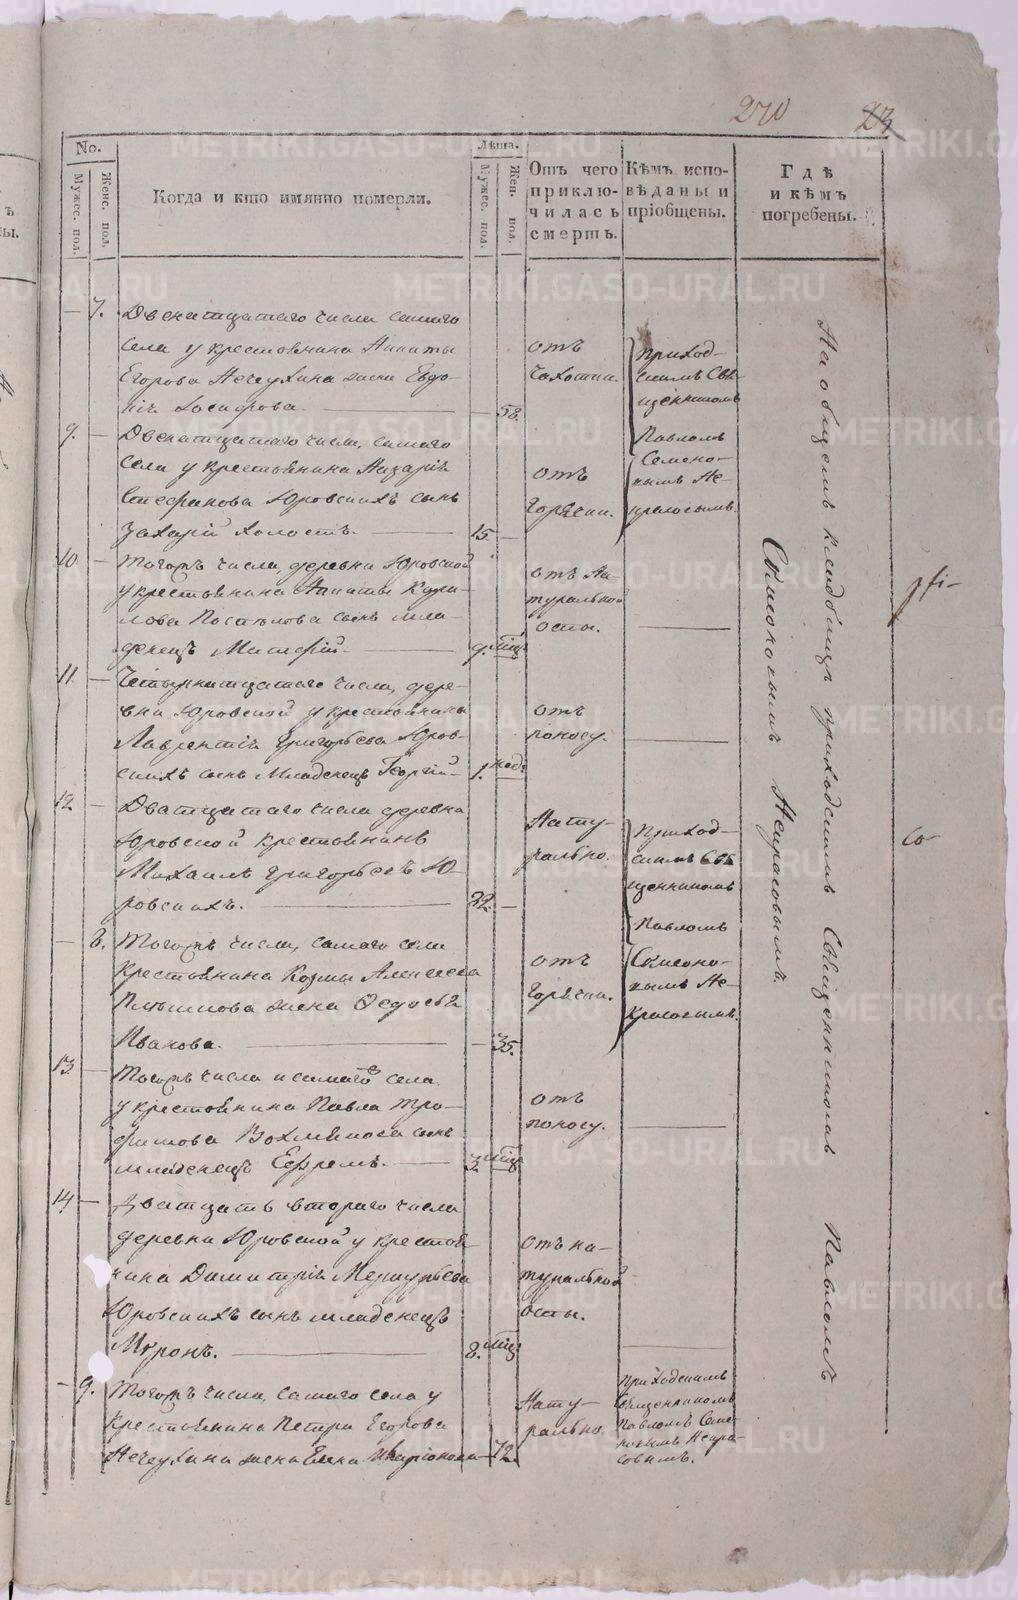 270 23
No.
Мужес. пол.
Женс. пол.
Когда и кто имянно померли.
Лѣта.
Мужес. пол.
Жен. пол.
Отъ чего
приклю-
чилась
смерть.
Кѣмъ испо-
вѣданы и
пріобщены.
Гдѣ
и кѣмъ
погребены.
— 7. Двенатцатаго числа самаго
села у крестьянина Никиты
Егорова Нечеухина жена Евдо-
кія Іосифова. — 58.
отъ
чахотки.
приход-
скимъ Свя-
щенникомъ
Павломъ
Симеоно-
вымъ Не-
красовымъ.
9. — Двенатцатаго числа, самаго
села у крестьянина Назарія
Стефанова Юровскихъ сынъ
Захарій холостъ. 15. —
отъ
горячки.
10 — Тогожъ числа, деревни Юровской
у крестьянина Никиты Кири-
лова Постылова сынъ мла-
денецъ 9. мцъ
отъ На-
туральной
оспы.
11. — Четырнатцатаго числа, дере-
вни Юровской у крестьянина
Лаврентія Григорьева Юров-
скихъ сынъ Младенецъ Георгій 1. нед:
отъ
поносу.
12. — Дватцатаго числа деревни
Юровской крестьянинъ
Михаилъ Григорьевъ Ю-
ровскихъ. 32. —
Нату-
рально.
приход-
скимъ Свя
щенникомъ
Павломъ
Симеоно-
вымъ Не-
красовымъ.
— 8. Тогожъ числа, самаго села
Крестьянина Козмы Алексеева
жена Федосья
Иванова. — 35.
отъ
горячки.
13. — Тогожъ числа и самаго села
у крестьянина Павла Тро-
фимова Вохмякова сынъ
младенецъ Ефремъ. 3. мцъ
отъ
поносу.
14 — Дватцать втораго числа
деревни Юровской у крестья-
нина Димитрія Меркурьева
Юровскихъ сынъ младенецъ
Миронъ. 8. мцъ
отъ на-
туральной
оспы.
— 9. Тогожъ числа, самаго села у
крестьянина Петра Егорова
Нечеухина жена Елена — 72.
Нату-
рально.
приходскимъ
Священникомъ
Павломъ Симе-
оновымъ Некра-
совымъ.
На общемъ кладбище приходскимъ Священникомъ Павломъ
Симеоновымъ Некрасовымъ.
METRIKI.GASO-URAL.RU